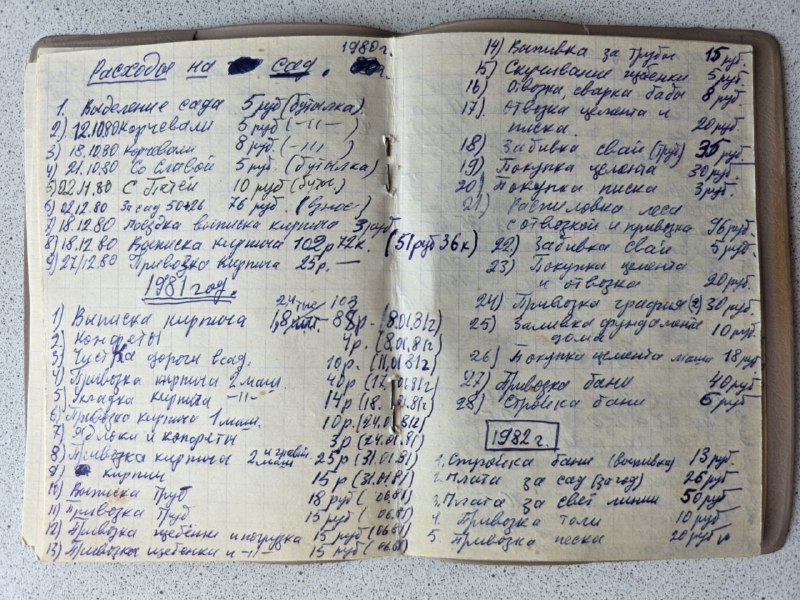 1980г.
Расходы на сад.
1. Выделение сада 5 руб (бутылка)
2) 12.10.80 Корчевали 5 руб (-11-)
3) 18.10.80 Корчевали 8 руб (-11)
4) 21.10.80 Со Славой 5 руб. (бутылка)
5) 02.11.80 С Петей 10 руб (бут.)
6) 02.12.80 За сад 50+26 76 руб. (взнос-)
7) 18.12.80 поездка выписка кирпича 3 руб
8) 18.12.80 Выписка кирпича 102р 72к. (51 руб 36 к)
9) 27.12.80 Привозка кирпича 25р. —
1981 год.
1) Выписка кирпича 88р. (8.01.81г)
2) Конфеты 4р. (8.01.81г)
3) Чистка дороги в сад. 10р. (11.01.81г)
4) Привозка кирпича 2 маш. 40р (.01.81г)
5) Укладка кирпича -11- 14р (18.01.81г)
6) Привозка кирпича 1 маш. 10р. (24.01.81г)
7) Яблоки и конфеты 3р (24.01.81)
8) Привозка кирпича 2 маш 25р (31.01.81)
9) кирпич 15р (31.01.81)
10) Выписка труб 18 руб (06.81)
11) Привозка труб 15 руб (06.81)
12) Привозка щебёнки и погрузка 15 руб (06.81)
13) Привозка щебенки и -11- 15 руб (06.81)
14) Выпивка за трубы 15 руб.
15) Скучивание щебенки 5 руб.
16) Отвозка, сварка бабы 8 руб
17) Отвозка цемента и
писка. 20 руб.
18) Забивка свай (труб) 35 руб
19) Покупка цемента 30 руб.
20) Покупка писка 3 руб.
21) Распиловка леса
с отвозкой и привозка 96 руб
22) Забивка свай 5 руб.
23) Покупка цемента
и отвозка 20 руб
24) Привозка графия (2) 30 руб.
25) Заливка фундамента
дома 10 руб
26) Покупка цемента маша 18 руб
27) Привозка бани 40 руб
28) Стройка бани 6 руб
1982 г.
1. Стройка бани (выпивка) 13 руб
2. Плата за сад (за год) 26 руб
3. Плата за свет линии 50 руб
4. Привозка толи 10 руб
5. Привозка песка 20 руб